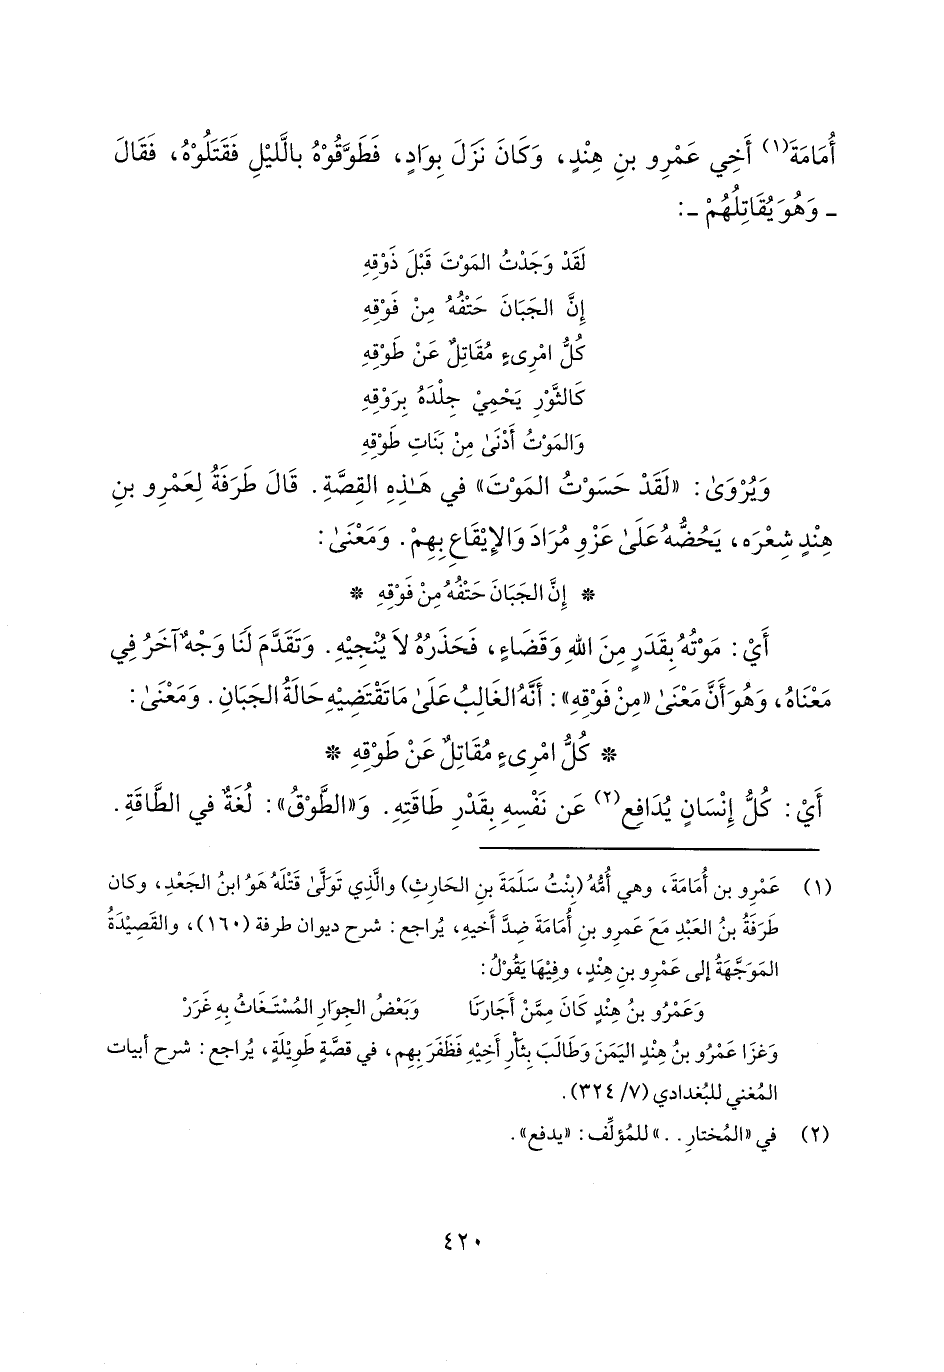 أُمَامَةَ(١) أَخِي عَمْرِو بنِ هِنْدٍ، وَكَانَ نَزَلَ بِوَادٍ، فَطَوَّقُوْهُ بالَّليْلِ فَقَتَلُوْهُ، فَقَالَ
ـ وَهُوَ يُقَاتِلُهُمْ ـ:
لَقَدْ وَجَدْتُ المَوْتَ قَبْلَ ذَوْقِهِ
إِنَّ الجَبَانَ حَتْفُهُ مِنْ فَوْقِهِ
كُلُّ امْرِىءٍ مُقَاتِلٌ عَنْ طَوْقِهِ
كَالثَّوْرِ يَحْمِيْ جِلْدَهُ بِرَوْقِهِ
وَالمَوْتُ أَدْنَىٰ مِنْ بَنَاتِ طَوْقِهِ
وَيُرْوَىٰ: «لَقَدْ حَسَوْتُ المَوْتَ» في هَـٰذِهِ القِصَّةِ. قَالَ طَرَفَةُ لِعَمْرِو بنِ
هِنْدٍ شِعْرَه، يَحُضُّهُ عَلَىٰ غَزْوِ مُرَادَ وَالإِيْقَاعِ بِهِمْ. وَمَعْنَىٰ:
* إِنَّ الجَبَانَ حَتْفُهُ مِنْ فَوْقِهِ *
أَيْ: مَوْتُهُ بِقَدَرٍ مِنَ اللهِ وَقَضَاءٍ، فَحَذَرُهُ لاَ يُنْجِيْهِ. وَتَقَدَّمَ لَنَا وَجْهٌ آخَرُ فِي
مَعْنَاهُ، وَهُوَ أَنَّ مَعْنَىٰ «مِنْ فَوْقِهِ»: أَنَّهُ الغَالِبُ عَلَىٰ مَا تَقْتَضِيْهِ حَالَةُ الجَبَانِ. وَمَعْنَىٰ:
* كُلُّ امْرِىءٍ مُقَاتِلٌ عَنْ طَوْقِهِ *
أَيْ: كُلُّ إِنْسَانٍ يُدَافِع(٢) عَن نَفْسِهِ بِقَدْرِ طَاقَتِهِ. وَ«الطَّوْقُ»: لُغَةٌ في الطَّاقَةِ.
(١) عَمْرِو بن أُمَامَةَ، وهي أُمُّهُ (بِنْتُ سَلَمَةَ بنِ الحَارِثِ) والَّذِي تَوَلَّىٰ قَتْلَهُ هُوَ ابنُ الجَعْدِ، وكان
طَرَفَةُ بنُ العَبْدِ مَعَ عَمرِو بنِ أُمَامَةَ ضِدَّ أخيهِ، يُراجع: شرح ديوان طرفة (١٦٠)، والقَصِيْدَةُ
المَوَجَّهَةُ إلى عَمْرِو بنِ هِنْدٍ، وفِيْهَا يَقُوْلُ:
وَعَمْرُو بنُ هِنْدٍ كَانَ مِمَّنْ أَجَارَنَا وَبَعْضُ الجِوَارِ المُسْتَغَاثُ بِهِ غَرَرْ
وَغزَا عَمْرُو بنُ هِنْدٍ اليَمَنَ وَطَالَبَ بِثأْرِ أَخِيْهِ فَظَفَرَ بِهِم، في قصَّةٍ طَوِيْلَةٍ، يُراجع: شرح أبيات
المُغني للبُغدادي (٧/ ٣٢٤).
(٢) في «المُختارِ. .» للمُؤلِّف: «يدفع».
٤٢٠